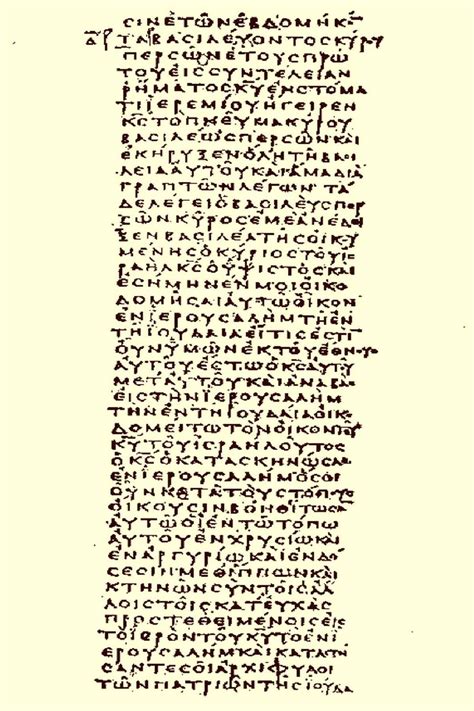 ϹΙΝΕΤΩΝΕΒΔΟΜΗΚΤ
ΤΑΒΑϹΙΛΕΥΟΝΤΟϹΚΥΡΥ
ΠΕΡϹΩΝΕΤΟΥϹΠΡΩ
ΤΟΥΕΙϹϹΥΝΤΕΛΕΙΑΝ
ΡΗΜΑΤΟϹΚΥΕΝϹΤΟΜΑ
ΤΙΙΕΡΕΜΙΟΥΗΓΕΙΡΕΝ
ΚϹΤΟΠΝΕΥΜΑΚΥΡΟΥ
ΒΑϹΙΛΕΩϹΠΕΡϹΩΝΚΑΙ
ΕΚΗΡΥΞΕΝΟΛΗΤΗΒΑϹΙ
ΛΕΙΑΑΥΤΟΥΚΑΙΑΜΑΔΙΑ
ΓΡΑΠΤΩΝΛΕΓΩΝ ΤΑ
ΔΕΛΕΓΕΙΟΒΑϹΙΛΕΥϹΠΕΡ
ϹΩΝΚΥΡΟϹΕΜΕΑΝΕΔΕΙ
ΞΕΝΒΑϹΙΛΕΑΤΗϹΟΙΚΟΥ
ΜΕΝΗϹΟΚΥΡΙΟϹΤΟΥΙϹ
ΡΑΗΛΚϹΟΥΨΙϹΤΟϹΚΑΙ
ΕϹΗΜΗΝΕΝΜΟΙΟΙΚΟ
ΔΟΜΗϹΑΙΑΥΤΩΟΙΚΟΝ
ΕΝΙΕΡΟΥϹΑΛΗΜΤΗΕΝ
ΤΗΙΟΥΔΑΙΑΕΙΤΙϹΕϹΤΙ
ΟΥΝΥΜΩΝΕΚΤΟΥΕΘΝΟΥϹ
ΑΥΤΟΥΕϹΤΩΟΚϹΑΥΤΟΥ
ΜΕΤΑΥΤΟΥΚΑΙΑΝΑΒΑϹ
ΕΙϹΤΗΝΙΕΡΟΥϹΑΛΗΜ
ΤΗΝΕΝΤΗΙΟΥΔΑΙΑΟΙΚΟ
ΔΟΜΕΙΤΩΤΟΝΟΙΚΟΝΤΟΥ
ΚΥΤΟΥΙϹΡΑΗΛΟΥΤΟϹ
ΟΚϹΟΚΑΤΑϹΚΗΝΩϹΑϹ
ΕΝΙΕΡΟΥϹΑΛΗΜΟϹΟΙ
ΟΥΝΚΑΤΑΤΟΥϹΤΟΠΟΥϹ
ΟΙΚΟΥϹΙΝΒΟΗΘΙΤΩϹΑΝ
ΑΥΤΩΟΙΕΝΤΩΤΟΠΩ
ΑΥΤΟΥΕΝΧΡΥϹΙΩΚΑΙ
ΕΝΑΡΓΥΡΙΩΚΑΙΕΝΔΟ
ϹΕϹΙΝΜΕΘΙΠΠΩΝΚΑΙ
ΚΤΗΝΩΝϹΥΝΤΟΙϹΑΛ
ΛΟΙϹΤΟΙϹΚΑΤΕΥΧΑϹ
ΠΡΟϹΤΕΘΕΙΜΕΝΟΙϹΕΙϹ
ΤΟΙΕΡΟΝΤΟΥΚΥΤΟΕΝΙ
ΕΡΟΥϹΑΛΗΜΚΑΙΚΑΤΑϹΤΗ
ϹΑΝΤΕϹΟΙΑΡΧΙΦΥΛΟΙ
ΤΩΝΠΑΤΡΙΩΝΤΗϹΙΟΥΔΑ